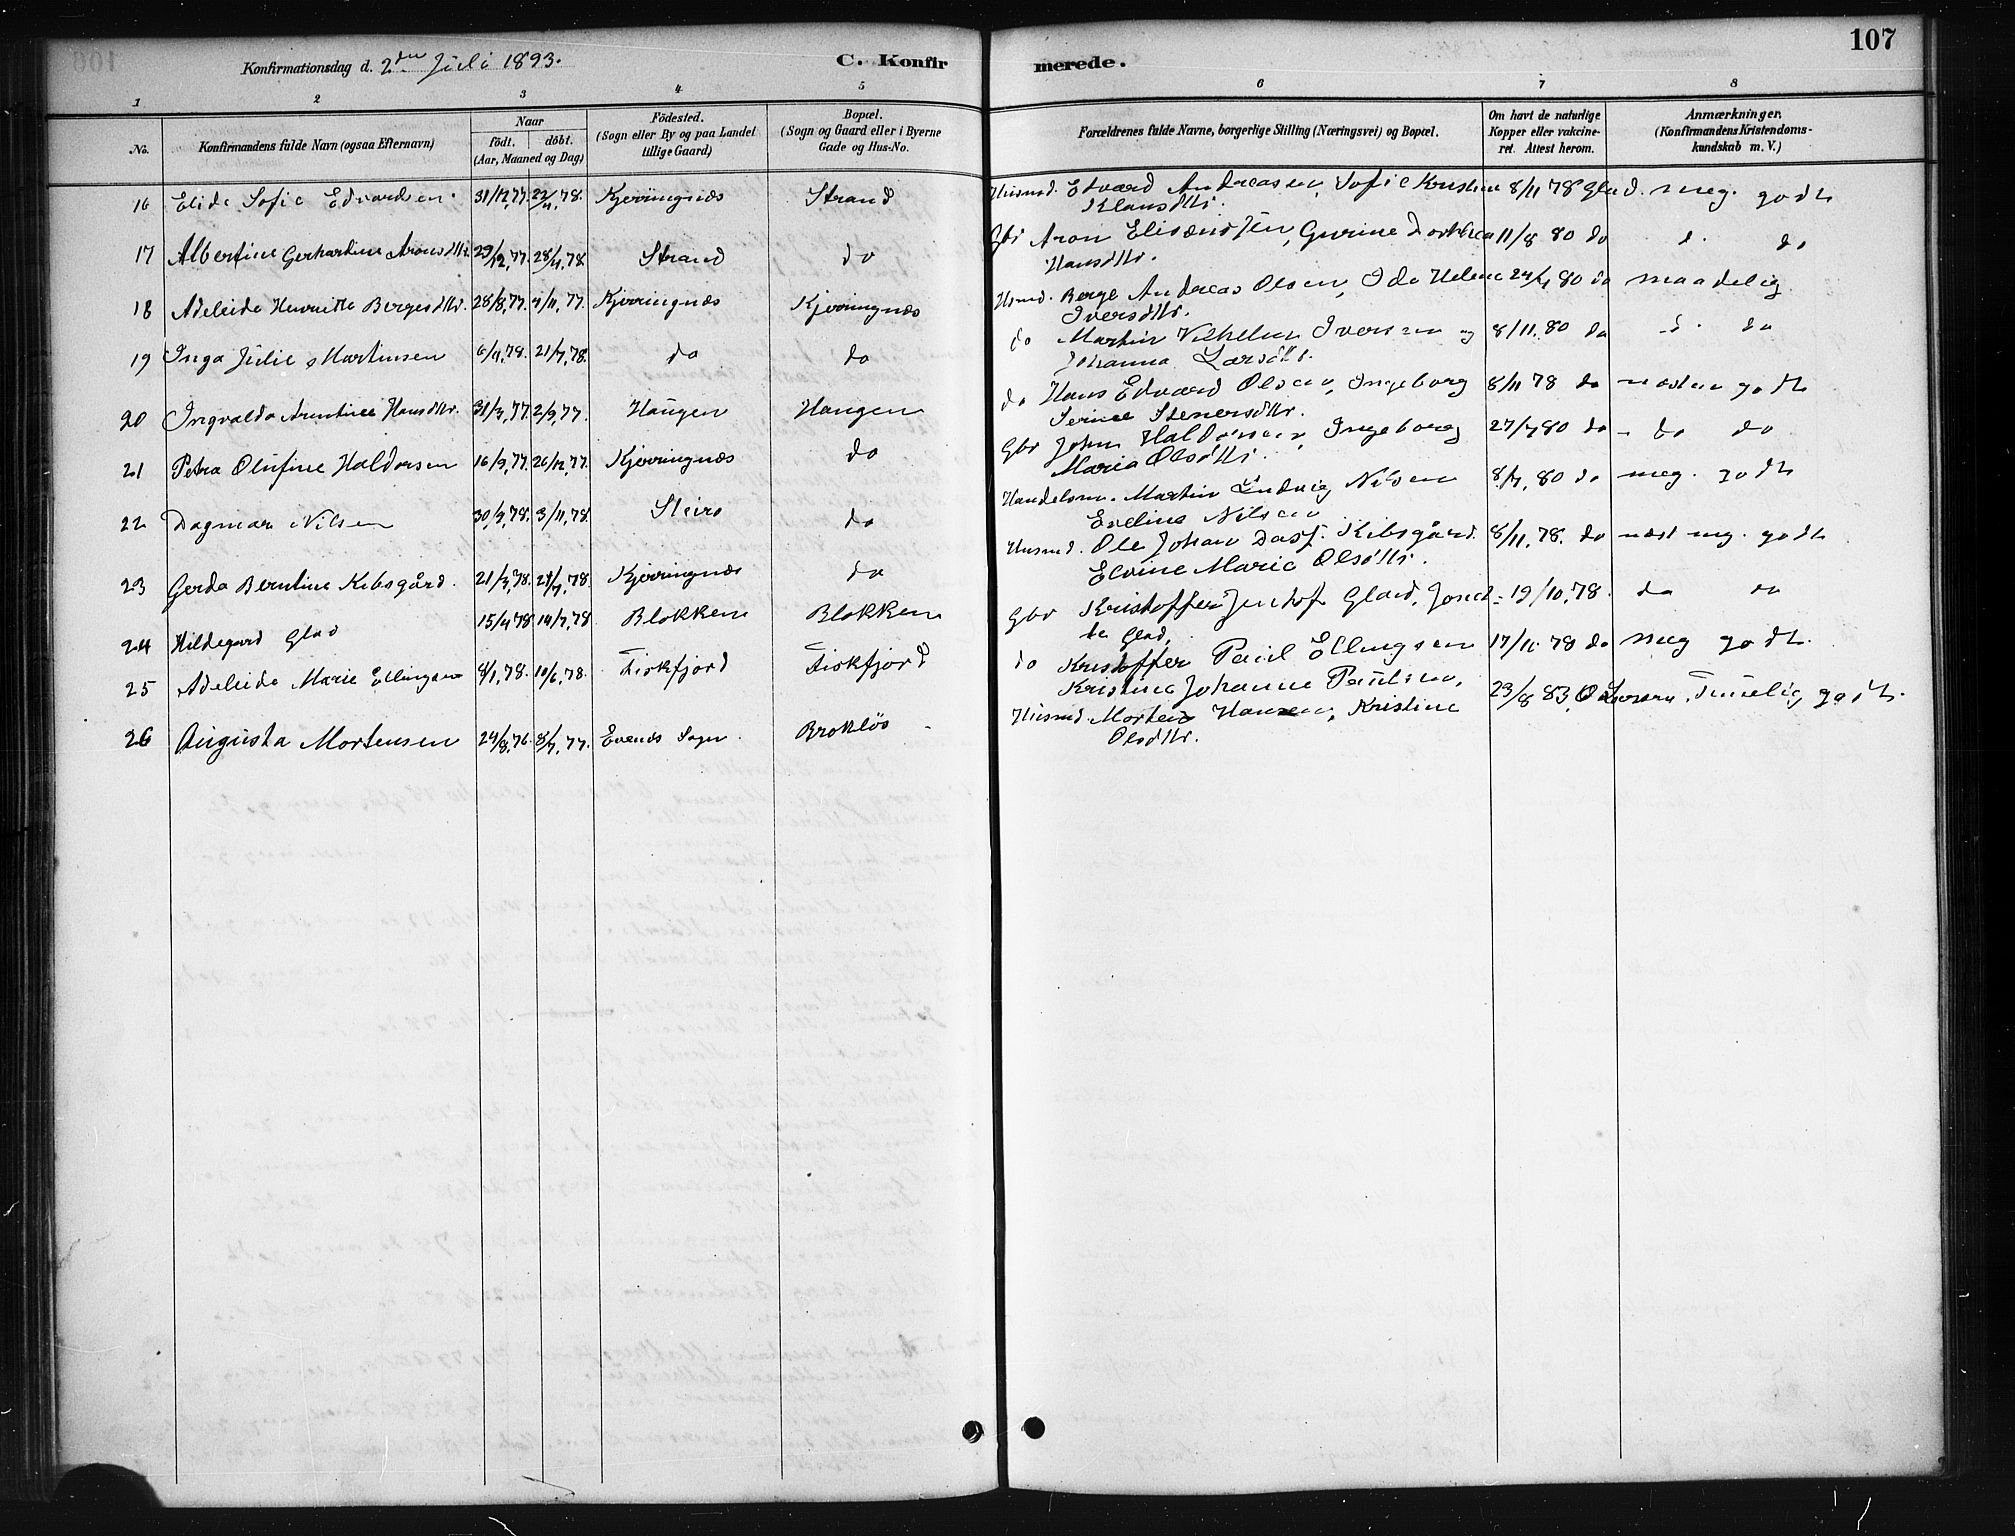 107
Konfirmationsdag d. 2den Juli 1893.
C. Konfirmerede.
1 2 3 4 5 6 7 8
No. Konfirmandens fulde Navn (ogsaa Efternavn) Naar födt. döbt. (Aar, Maaned og Dag) Födested. (Sogn eller By og paa Landet tillige Gaard) Bopæl. (Sogn og Gaard eller i Byerne Gade og Hus-No. Forældrenes fulde Navne, borgerlige Stilling (Næringsvei) og Bopæl. Om havt de naturlige Kopper eller vakcineret. Attest herom. Anmærkninger. (Konfirmandens Kristendomskundskab m. V.)
16 Elide Sofie Edvardsen. 31/12,77. 22/4,78. Kjerringnæs Strand Husmd. Edvard Andreasen, Sofie Kristine 8/11 78 Glad. meg. godt
Klausdtr.
17 Albertine Gerhartine Aronsdtr. 29/12,77. 28/4,78 Strand do Gbr Aron Elisæussen, Gurine Dorthea 11/8 80 do d. do
Hansdtr.
18 Adeleide Henrietta Bergesdtr. 28/8,77. 4/11,77. Kjerringnæs Kjerringnæs Husmd. Berge Andreas Olsen, Ida Helene 24/7 80 do maadelig
Iversdtr.
19 Inga Julie Martinsen 6/4,78. 21/7,78. do do do Martin Vilhelm Iversen og 8/11.80 do d. do
Johanna Larsdtr.
20 Ingvalda Arntine Hansdtr. 31/3,77. 2/9,77. Haugen Haugen do Hans Edvard Olsen, Ingeborg 8/11 78 do næsten godt
Serine Stenersdtr.
21 Petra Olufine Haldorsen 16/9,77. 26/12,77. Kjerringnæs do Gbr John Haldorsen, Ingeborg 27/7,80 do - do do
Maria Olsdtr.
22 Dagmar Nilsen 30/9,78. 3/11,78. Steiro do Handelsm. Martin Ludvig Nilsen 8/7, 80 do meg. godt
Eveline Nilsen
23 Gerda Berntine Kibsgård. 21/3,78. 21/7,78. Kjerringnæs do Husmd. Ole Johan Kibsgård. 8/11,78. do næst mg. godt
Elvine Marie Olsdtr.
24 Hildegard Glad 15/4 78 14/7,78 Blokken Blokken Gbr Kristoffer Jentoft Glad, 19/10,78. do do
Glad,
25 Adeleide Marie Ellingsen 8/1,78. 10/6,78. Fiskfjord Fiskfjord do Kristoffer Paul Ellingsen 17/11 78 do meg godt.
Kristine Johanne Paulsen,
26 Augusta Mortensen 24/8,76. 8/7,77. Evenes Sogn. Brokløs Husmd. Morten Hansen, Kristine 23/8 83, O Larsen. Temelig godt.
Olsdtr.